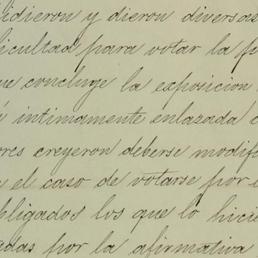 idieron y dieron diversas
licultad para votar la fo
ue concluye la exposicion
intimamente enlazada c
ores creyeron deberse modif
el caso de votarse por
bligados los que lo hicie
adas por la afirmativa